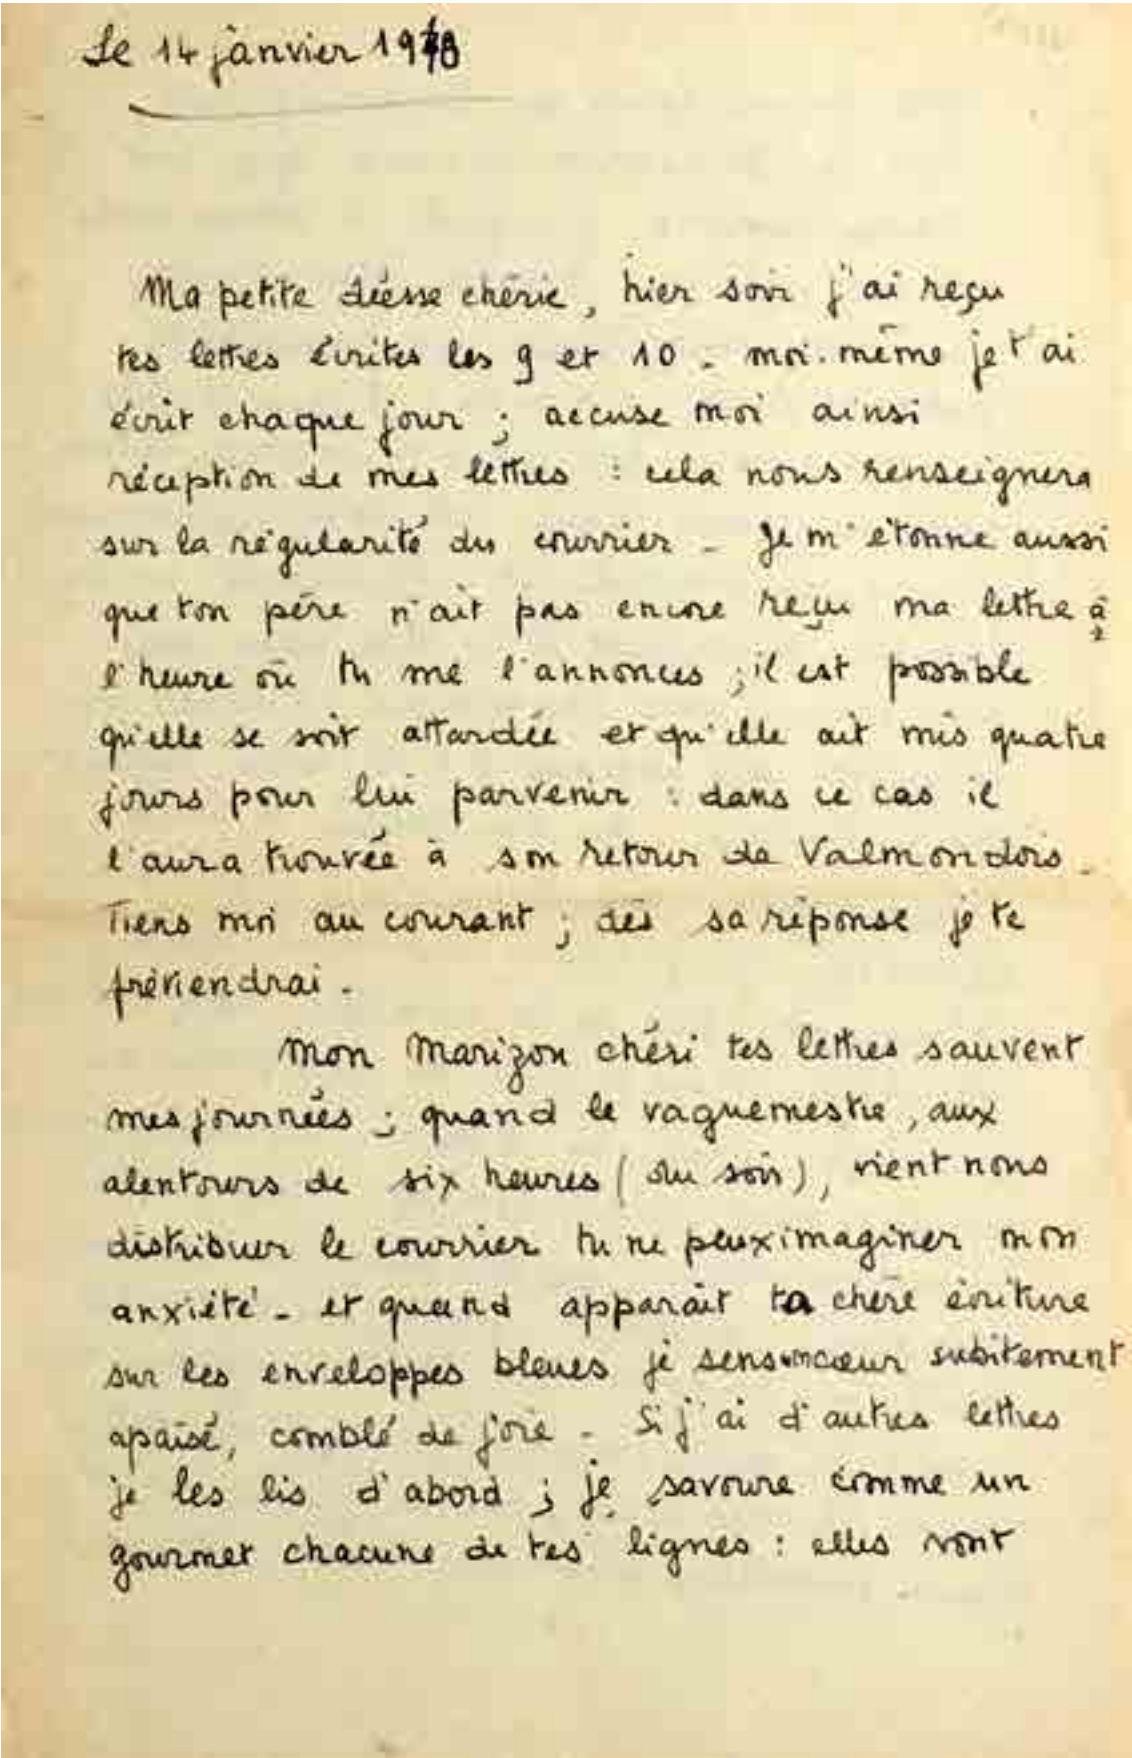 Le 14 janvier 1918
Ma petite déesse chérie, hier soir j'ai reçu
tes lettres écrites les 9 et 10 - moi-même je t'ai
écrit chaque jour ; accuse moi ainsi
réception de mes lettres : cela nous renseignera
sur la régularité du courrier - Je m'étonne aussi
que ton père n'ait pas encore reçu ma lettre à
l'heure où tu me l'annonces ; il est possible
qu'elle se soit attardée et qu'elle ait mis quatre
jours pour lui parvenir : dans ce cas il
l'aura trouvée à son retour de Valmondois -
Tiens moi au courant ; dès sa réponse je te
préviendrai -
Mon Marizon chéri tes lettres sauvent
mes journées ; quand le vaguemestre, aux
alentours de six heures (du soir), vient nous
distribuer le courrier tu ne peux imaginer mon
anxiété - et quand apparaît ta chère écriture
sur les enveloppes bleues je sens mon cœur subitement
apaisé, comblé de joie - Si j'ai d'autres lettres
je les lis d'abord ; je savoure comme un
gourmet chacune de tes lignes : elles sont